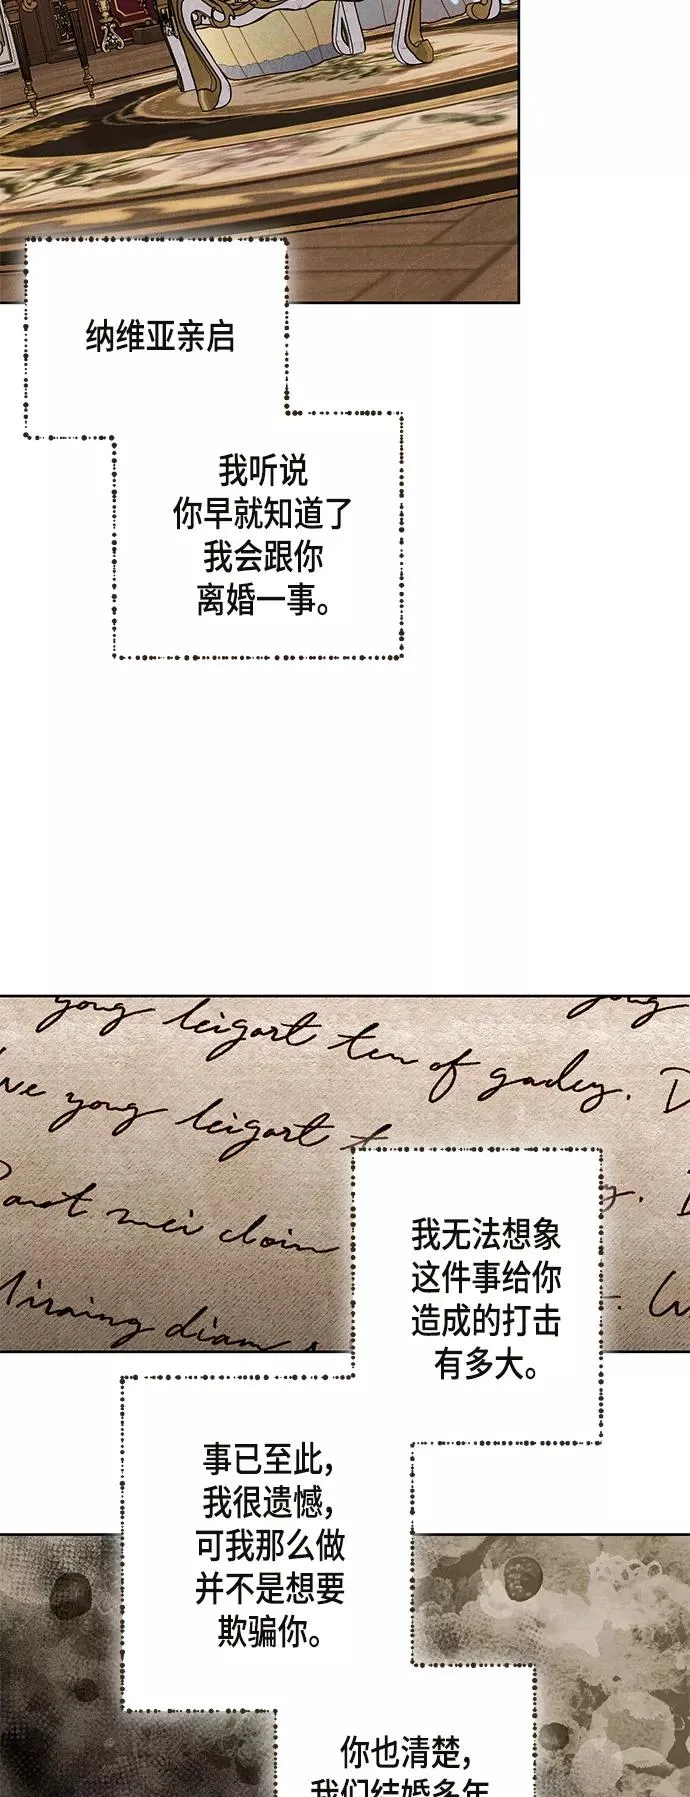 纳维亚亲启
我听说
你早就知道了
我会跟你
离婚一事。
yong leigart ten of gadey. D
ve yong leigart t
mei cloin
diam
我无法想象
这件事给你
造成的打击
有多大。
事已至此，
我很遗憾，
可我那么做
并不是想要
欺骗你。
你也清楚，
我们结婚多年